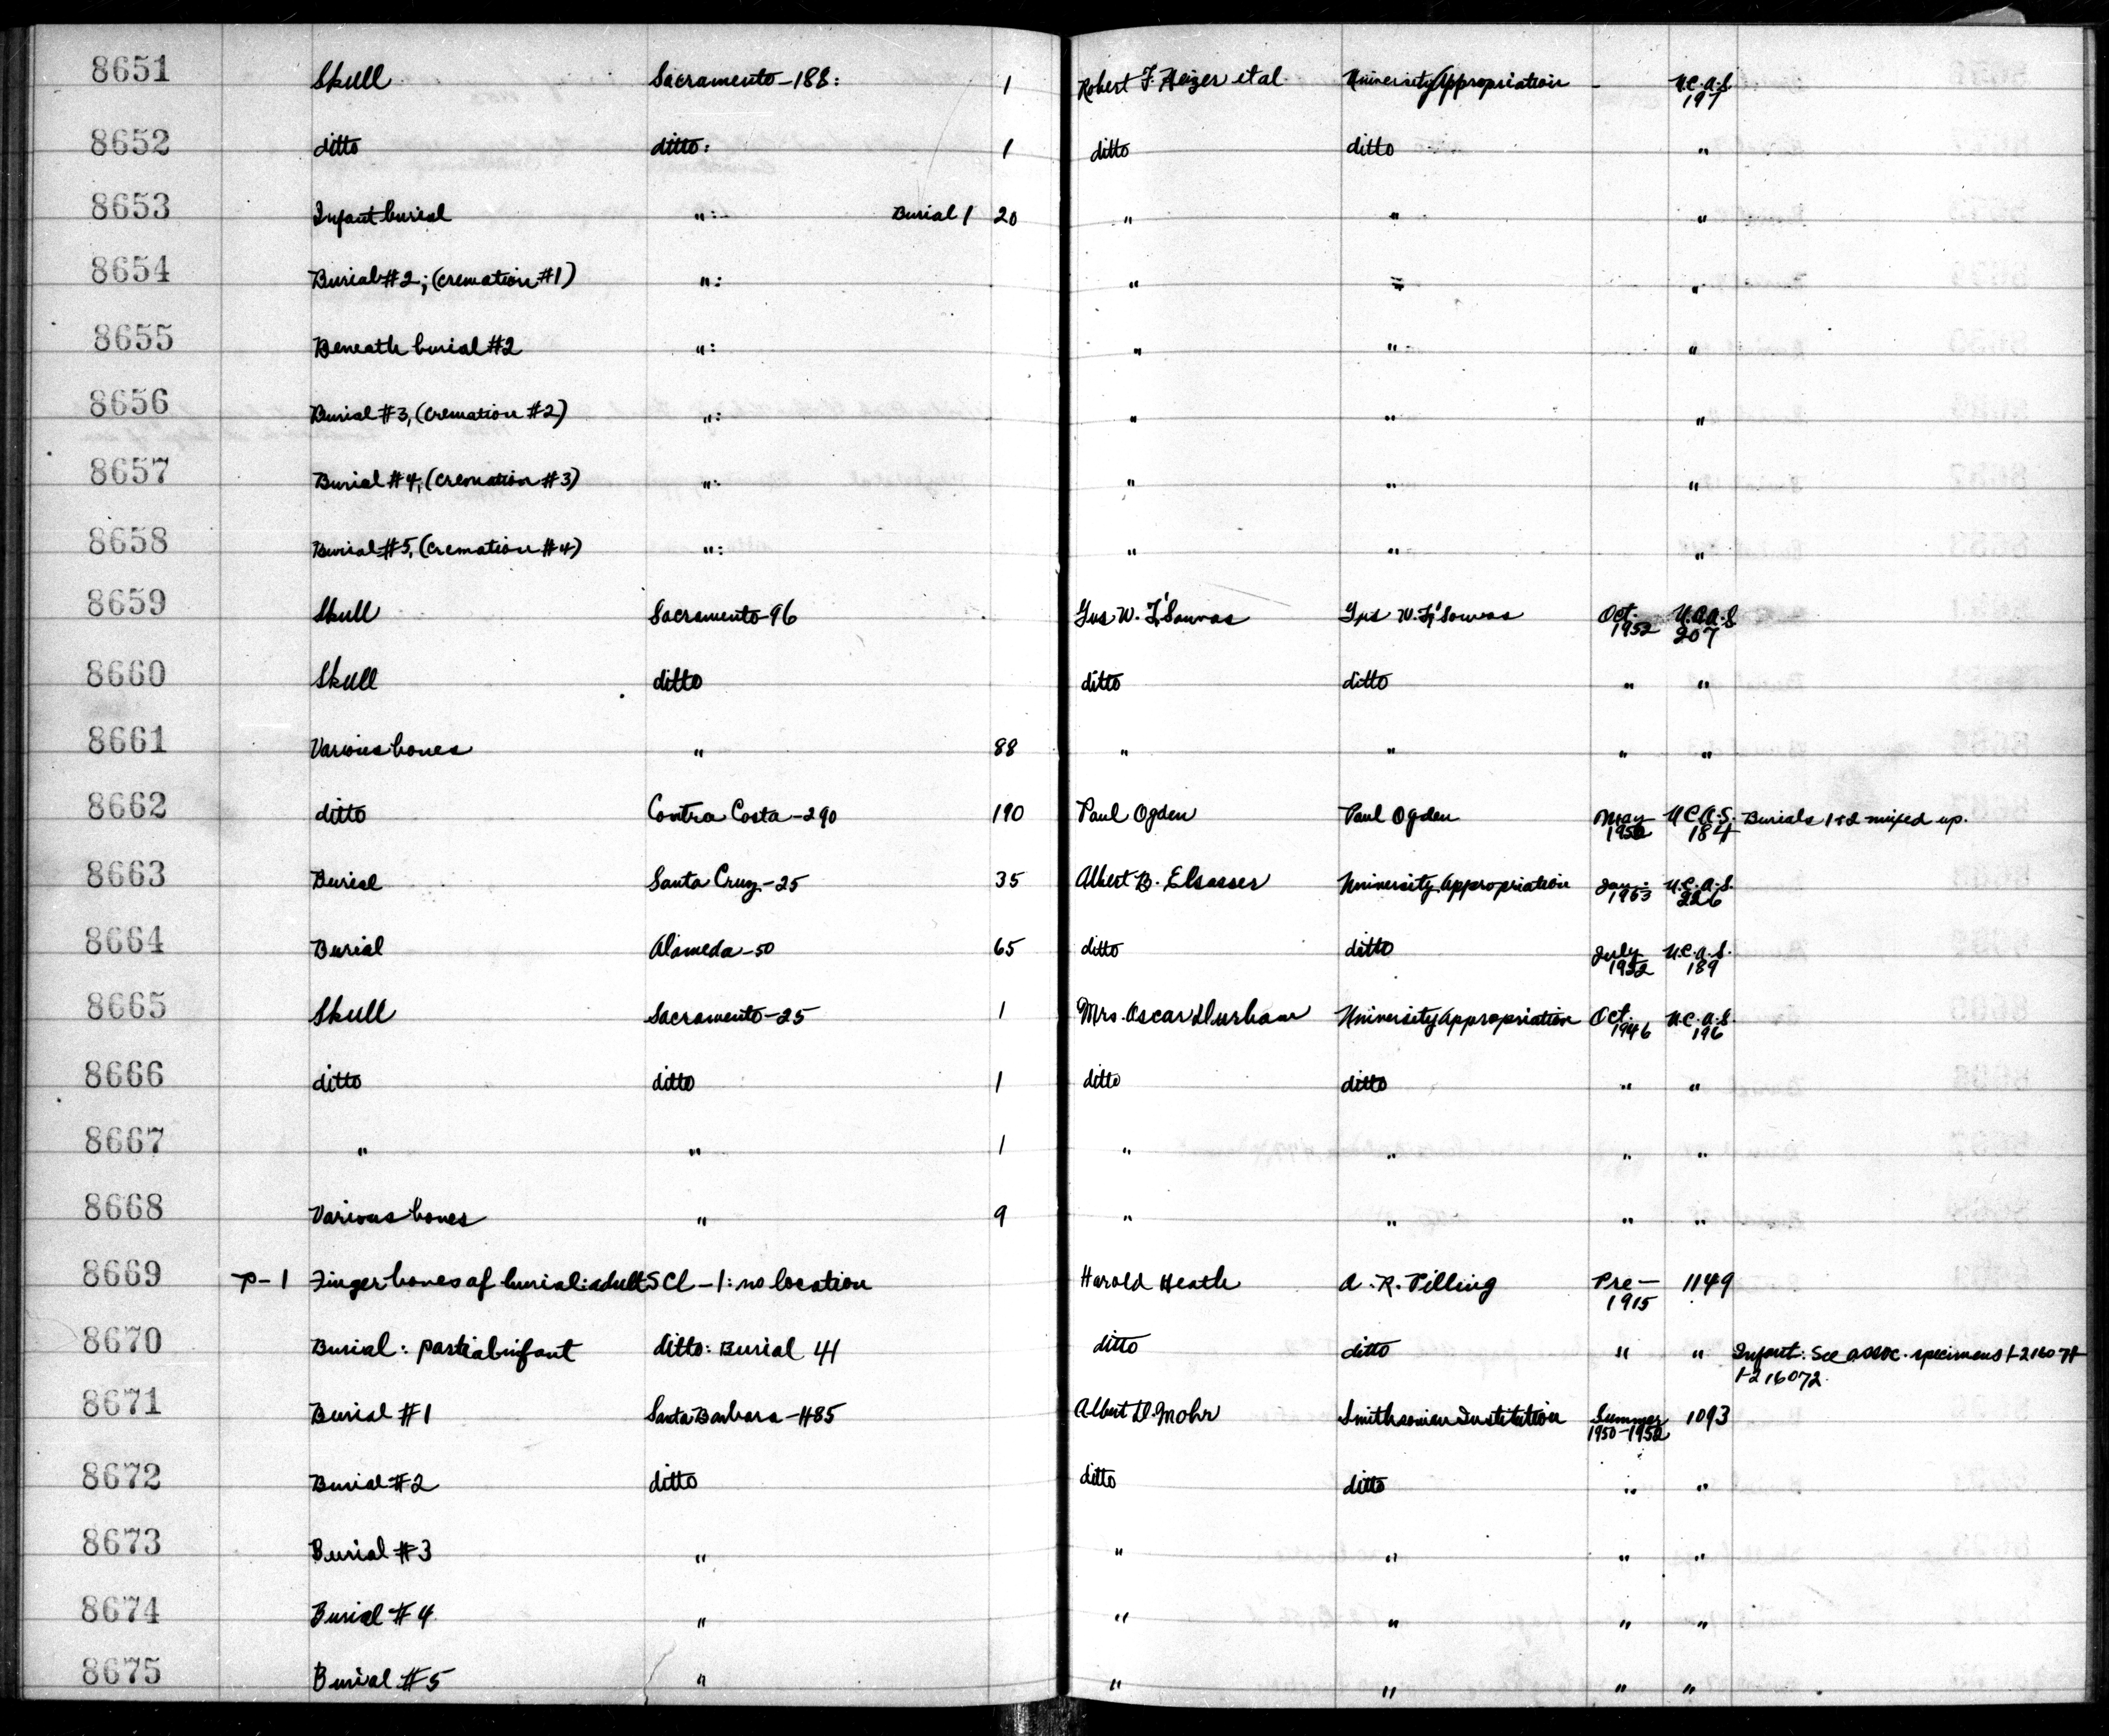 8651 Skull Sacramento-188: 1 Robert F. Heizer et al. University Appropriation - U.C.A.S. 197
8652 ditto ditto: 1 ditto ditto "
8653 Infant burial ":- Burial 1 20 " " "
8654 Burial #2; (cremation #1) ": " " "
8655 Beneath burial #2 ": " " "
8656 Burial #3, (cremation #2) ": " " "
8657 Burial #4, (cremation #3) ": " " "
8658 Burial #5, (cremation #4) ": " " "
8659 Skull Sacramento-96 Gus W. Oct. 1952 U.C.A.S 207
8660 Skull ditto ditto ditto " "
8661 Various bones " 88 " " " "
8662 ditto Contra Costa-290 190 Paul Ogden Paul Ogden May U.C.A.S. 184 Burials 1+2 mixed up.
8663 Burial Santa Cruz-25 35 Albert B. Elsasser University Appropriation Jan. U.C.A.S. 226
8664 Burial Alameda-50 65 ditto ditto July 1952 U.C.A.S. 189
8665 Skull Sacramento-25 1 Mrs. Oscar Durham University Appropriation Oct. 1946 U.C.A.S. 196
8666 ditto ditto 1 ditto ditto " "
8667 " " 1 " " " "
8668 Various bones " 9 " " " "
8669 P-1 Finger bones of burial: adult SCl-1: no location Harold Heath A. R. Pilling Pre- 1915 1149
8670 Burial: partial infant ditto: Burial 41 ditto ditto " " Infant: See assoc. specimens
1-216072.
8671 Burial #1 Santa Barbara-485 Albert D. Mohr Smithsonian Institution Summer 1950-1952 1093
8672 Burial #2 ditto ditto ditto " "
8673 Burial #3 " " " " "
8674 Burial #4 " " " " "
8675 Burial #5 " " " " "